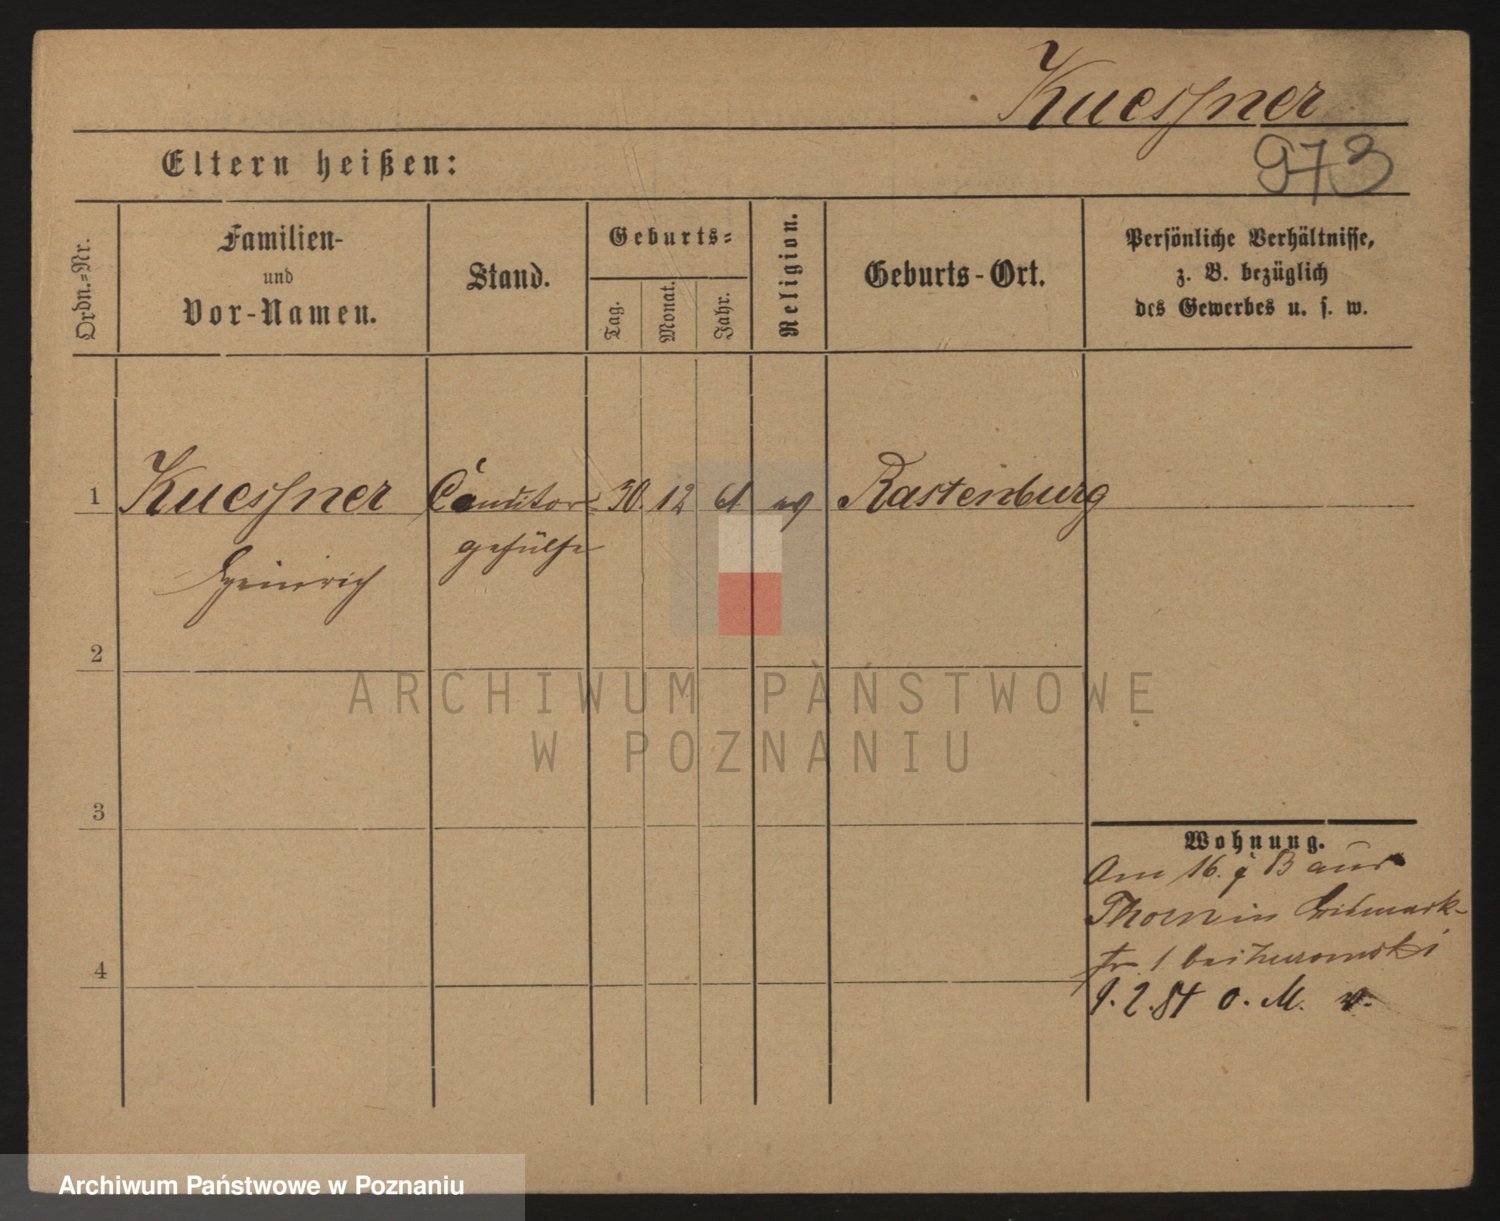 Kuessner
973
Eltern heißen:
Ordn.-Nr.
Familien-
und
Vor-Namen.
Stand.
Geburts-
Tag.
Monat.
Jahr.
Religion.
Geburts-Ort.
Persönliche Verhältnisse,
z. B. bezüglich
des Gewerbes u. s. w.
1 Kuessner Conditor- 30. 12 61 ev Rastenburg
Heinrich gehülfe
2
ARCHIWUM PAŃSTWOWE
W POZNANIU
3
Wohnung.
Am 16. 9 aus
Thorn in
str 1 bei
9.2.84 o. M. v.
4
Archiwum Państwowe w Poznaniu